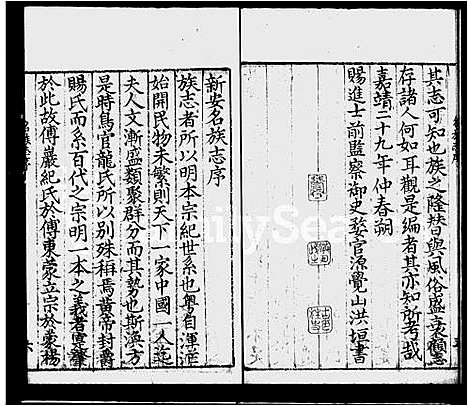 其志可知也族之隆替與風俗盛衰顧
存諸人何如耳觀是編者其亦知所考哉
嘉靖二十九年仲春朔
賜進士前監察御史婺官源覺山洪垣書
新安名族志序
族志者所以明本宗紀世系也粵自渾沌
始開民物未繁則天下一家中國一人迄
夫人文漸盛類聚群分而其勢也斯渙方
是時鳥官龍氏所以別殊稱焉黃帝封爵
賜氏而系百代之宗明一本之義者實肇
於此故傅巖紀氏於傅東蒙立宗於蒙楊
FamilySearch